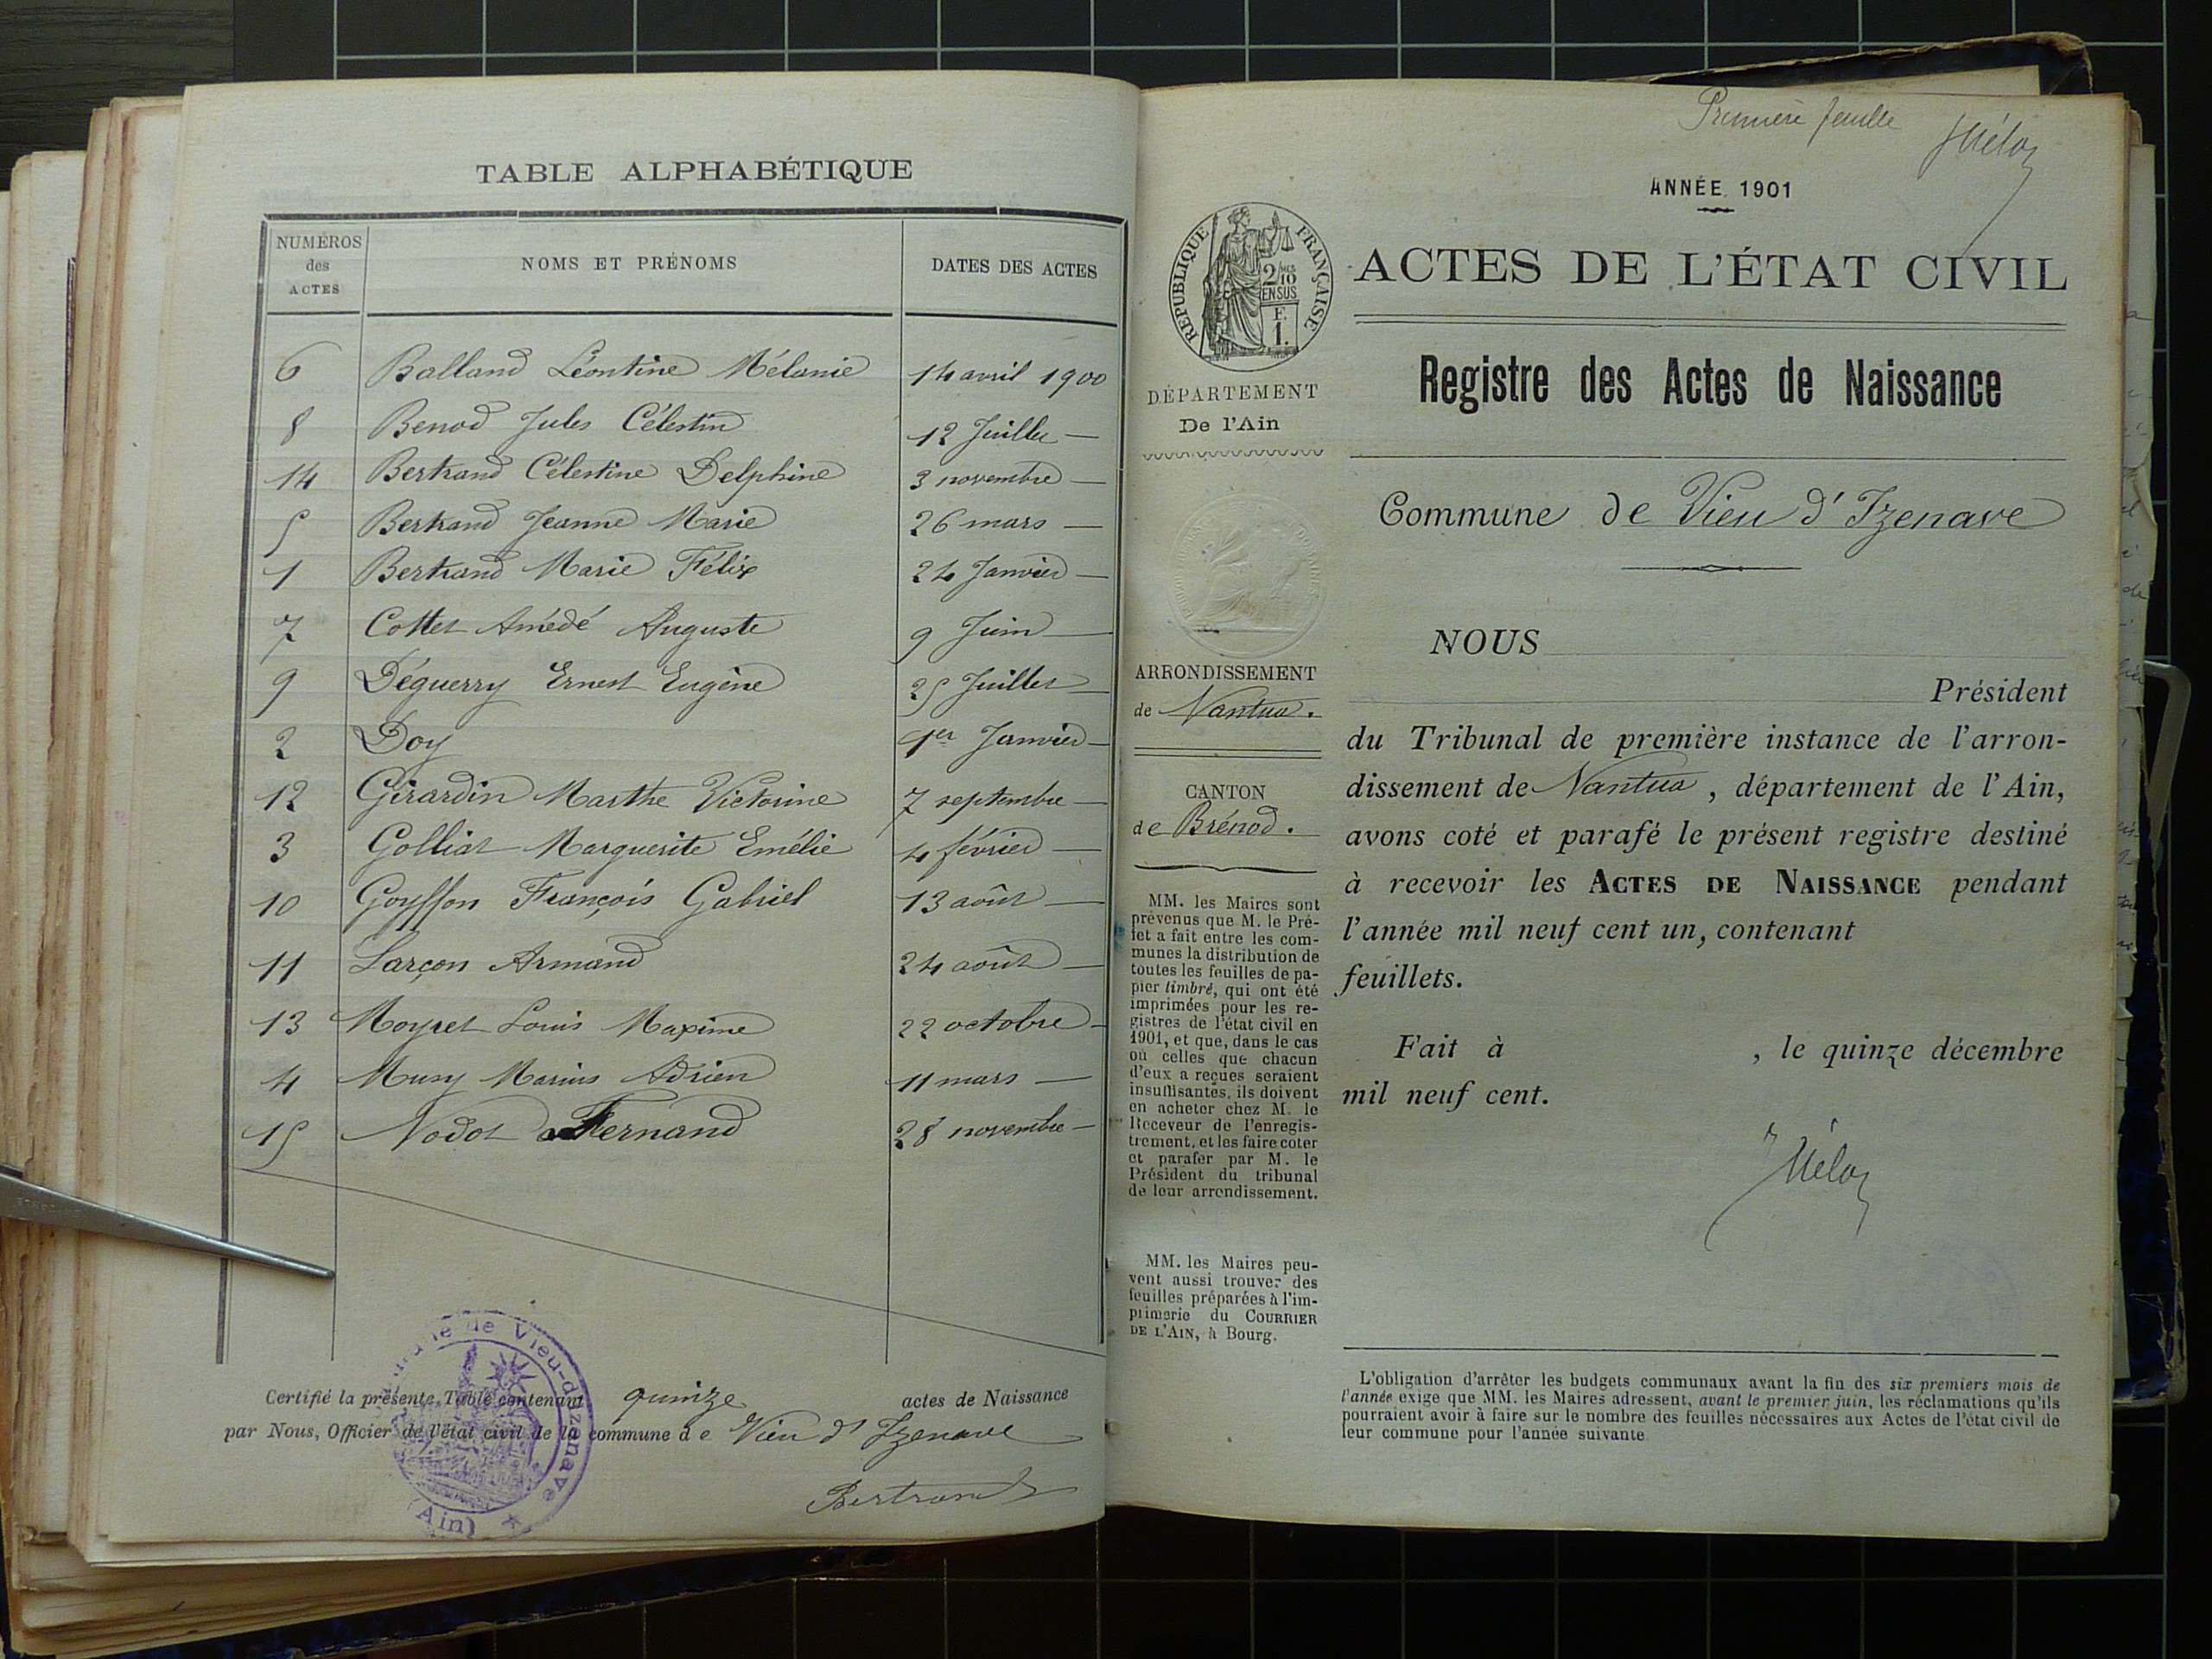 TABLE ALPHABÉTIQUE
NUMÉROS des ACTES
NOMS ET PRÉNOMS
DATES DES ACTES
6 Balland Léontine Mélanie 14 avril 1900
8 Benod Jules Célestin 12 Juillet —
14 Bertrand Célestine Delphine 3 novembre —
5 Bertrand Jeanne Marie 26 mars —
1 Bertrand Marie Félix 24 Janvier —
7 Cottet Amédé Auguste 9 Juin —
9 Déguerry Ernest Eugène 25 Juillet —
2 Doy 1er Janvier —
12 Girardin Marthe Victorine 7 septembre —
3 Golliat Marguerite Emélie 4 février —
10 Goyffon François Gabriel 13 août —
11 Larçon Armand 24 août —
13 Moyret Louis Maxime 22 octobre —
4 Musy Marius Adrien 11 mars —
15 Nodot Fernand 28 novembre —
Certifié la présente Table contenant quinze actes de Naissance
par Nous, Officier de l'état civil de la commune de Vieu d'Izenave
Bertrand
de Vieu-d'Izenave
(Ain)
Première feuille
ANNÉE 1901
RÉPUBLIQUE FRANÇAISE
2/10
EN SUS
F.
1.
ACTES DE L'ÉTAT CIVIL
Registre des Actes de Naissance
DÉPARTEMENT
De l'Ain
Commune de Vieu d'Izenave
ARRONDISSEMENT
de Nantua.
CANTON
de Brénod.
NOUS
Président
du Tribunal de première instance de l'arron-
dissement de Nantua, département de l'Ain,
avons coté et parafé le présent registre destiné
à recevoir les ACTES DE NAISSANCE pendant
l'année mil neuf cent un, contenant
feuillets.
Fait à , le quinze décembre
mil neuf cent.
MM. les Maires sont
prévenus que M. le Pré-
fet a fait entre les com-
munes la distribution de
toutes les feuilles de pa-
pier timbré, qui ont été
imprimées pour les re-
gistres de l'état civil en
1901, et que, dans le cas
où celles que chacun
d'eux a reçues seraient
insuffisantes, ils doivent
en acheter chez M. le
Receveur de l'enregis-
trement, et les faire coter
et parafer par M. le
Président du tribunal
de leur arrondissement.
MM. les Maires peu-
vent aussi trouver des
feuilles préparées à l'im-
primerie du COURRIER
DE L'AIN, à Bourg.
L'obligation d'arrêter les budgets communaux avant la fin des six premiers mois de
l'année exige que MM. les Maires adressent, avant le premier juin, les réclamations qu'ils
pourraient avoir à faire sur le nombre des feuilles nécessaires aux Actes de l'état civil de
leur commune pour l'année suivante.